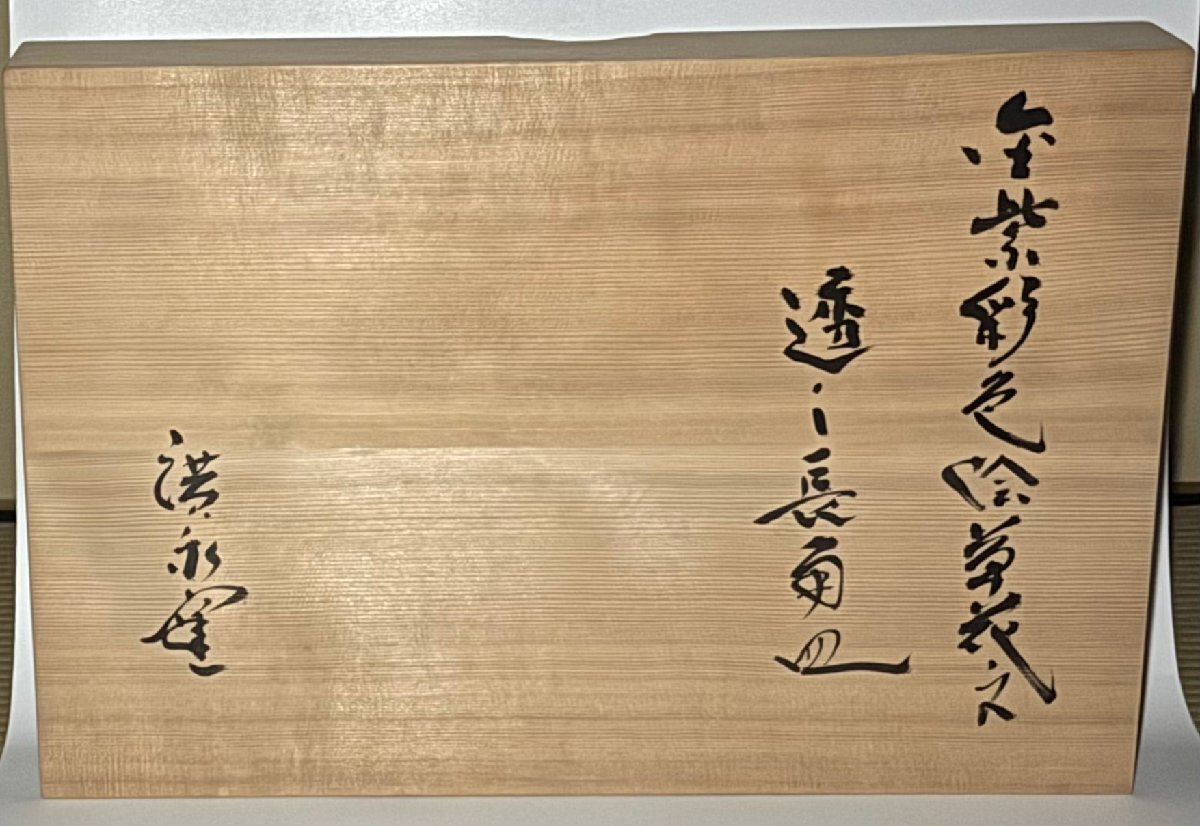 金紫彩色絵草花文
透し長角皿
洪永窯